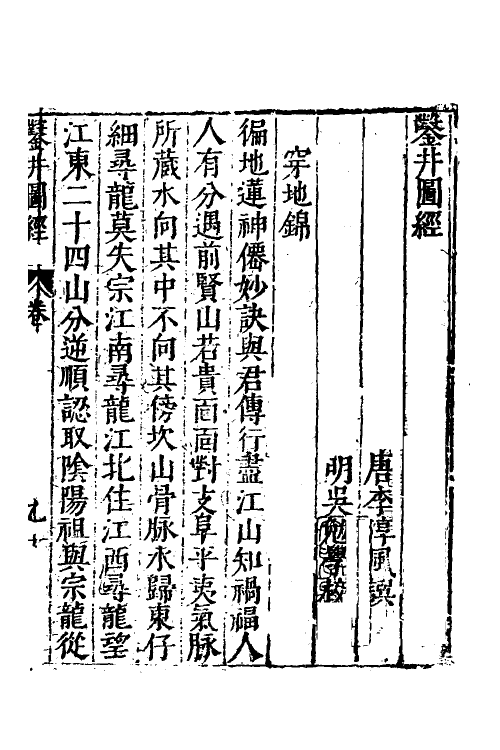 鑿井圖經
唐李淳風譔
明吳勉學校
穿地錦
徧地蓮神僊妙訣與君傳行盡江山知禍福人
人有分遇前賢山若貴面面對支阜平夷氣脉
所藏水向其中不向其傍坎山骨脉水歸東仔
細尋龍莫失宗江南尋龍江北住江西尋龍望
江東二十四山分逆順認取陰陽祖與宗龍從
鑿井圖經
卷